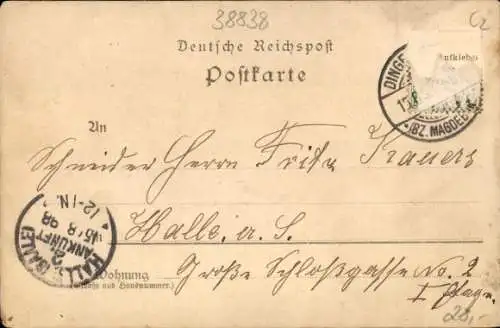 38838
C2
Deutsche Reichspost
Postkarte
Aufklebe
DINGE
15 8
(BZ. MAGDEB
An
Schneider Herrn Fritz Krauers
HALLE (SAALE)
ANKUNFT
15 8 98
12-1N.
2
Halle a. S.
Wohnung
(Straße und Hausnummer)
Große Schloßgasse No. 2
I Etage.
20,-